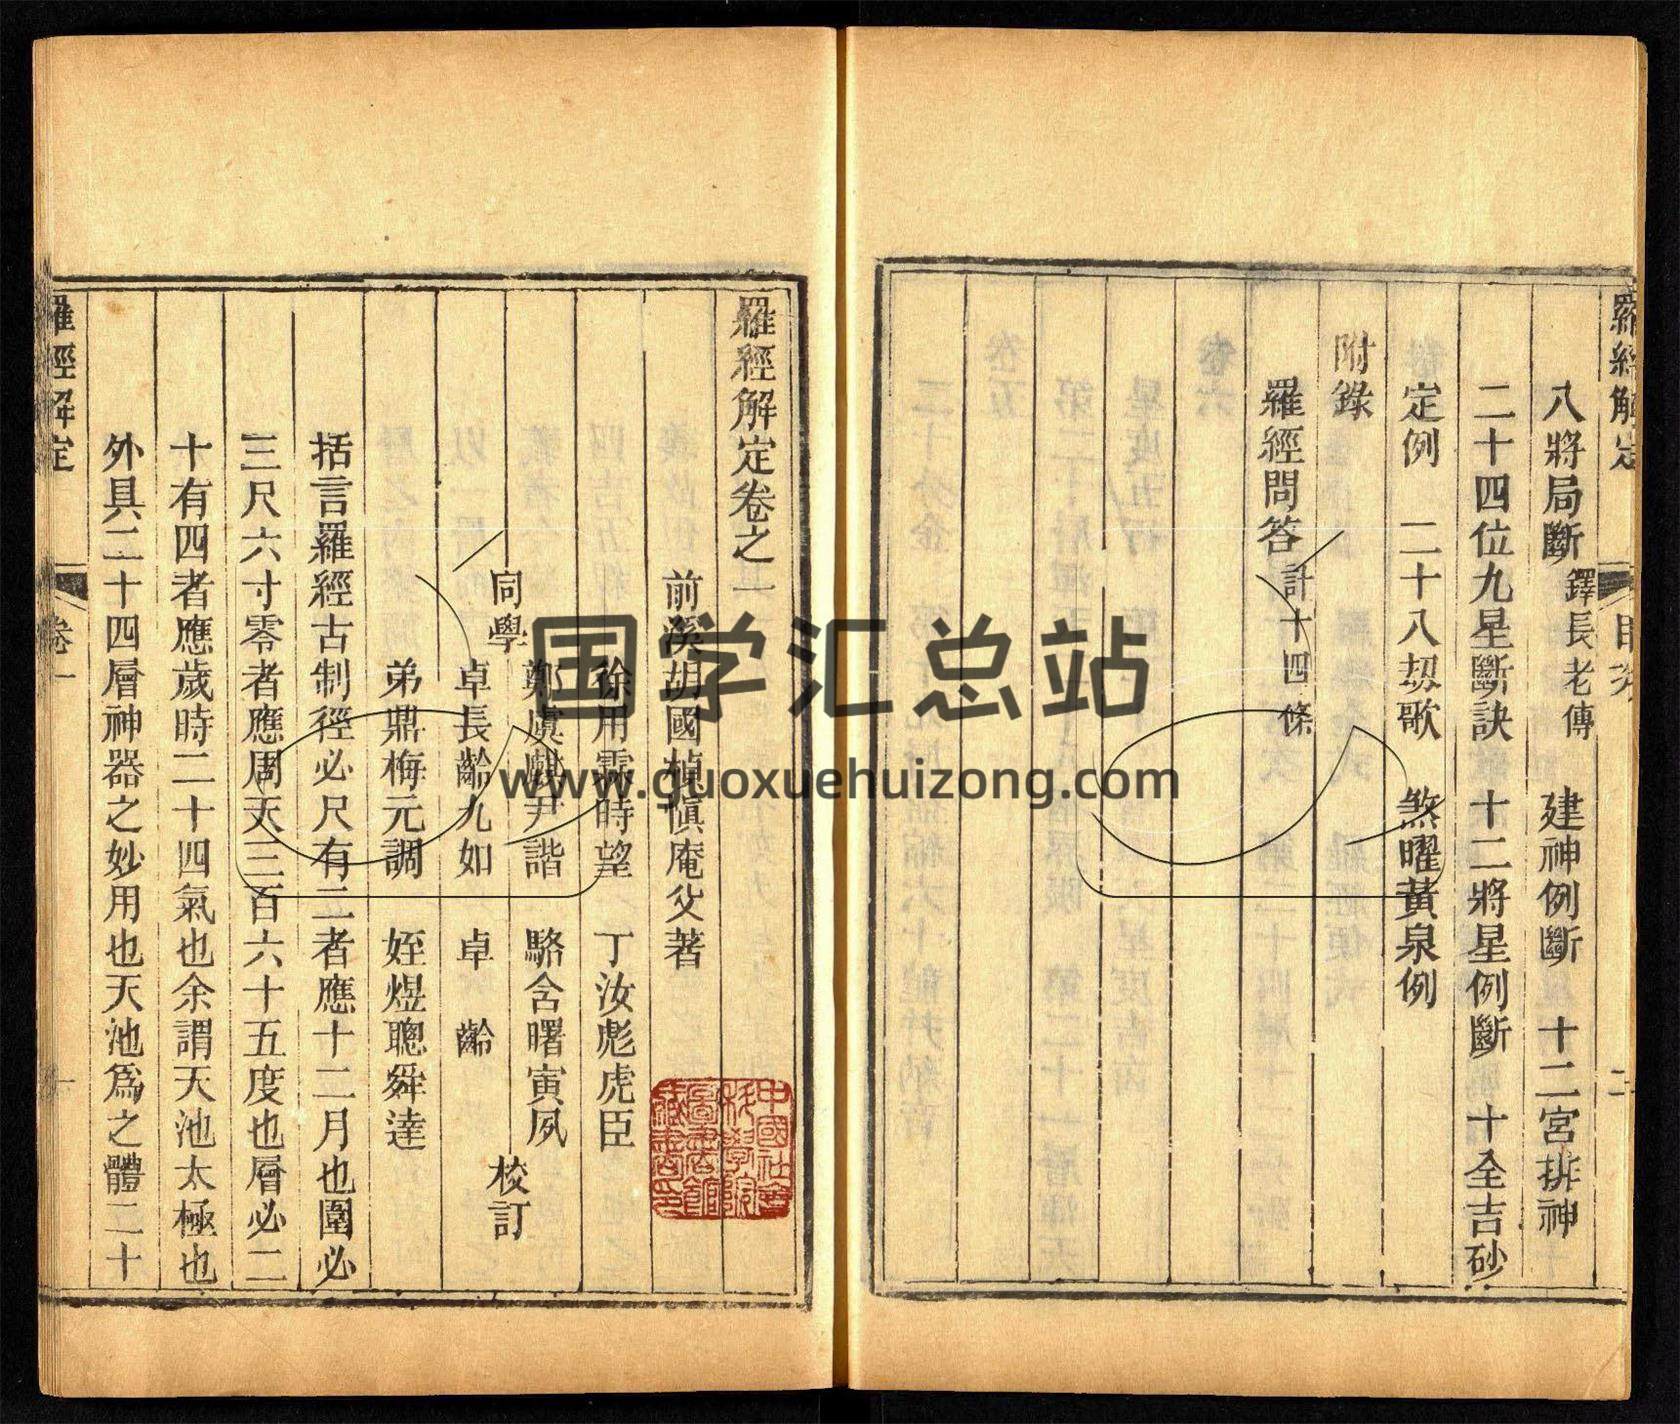 羅經解定
目次
二
八將局斷 鐸長老傳 建神例斷 十二宮排神
二十四位九星斷訣 十二將星例斷 十全吉砂
定例 二十八刧歌 煞曜黃泉例
附錄
羅經問答 計十四條
羅經解定卷之一
前溪胡國楨慎庵父著
徐用霖時望 丁汝彪虎臣
同學 鄭虞飈尹諧 駱含曙寅夙 校訂
卓長齡九如 卓齡
弟鼎梅元調 姪煜聰舜達
括言羅經古制徑必尺有二者應十二月也圍必
三尺六寸零者應周天三百六十五度也層必二
十有四者應歲時二十四氣也余謂天池太極也
外具二十四層神器之妙用也天池爲之體二十
羅經解定
卷一
一
中國社會科學院圖書館藏書印
国学汇总站
www.guoxuehuizong.com